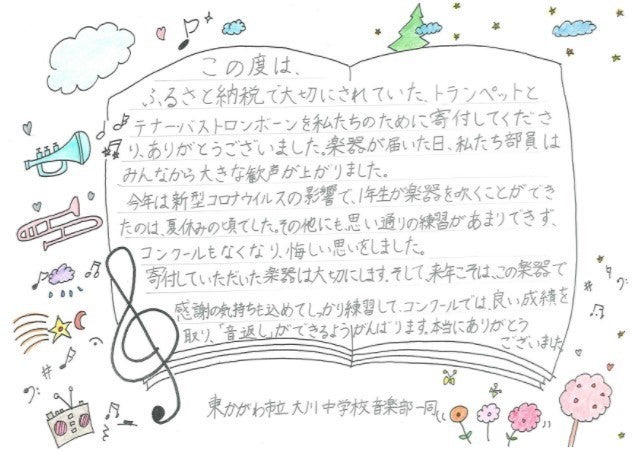 この度は、
ふるさと納税で大切にされていた、トランペットと
テナーバストロンボーンを私たちのために寄付してくださ
り、ありがとうございました。楽器が届いた日、私たち部員は
みんなから大きな歓声が上がりました。
今年は新型コロナウイルスの影響で、1年生が楽器を吹くことができ
たのは、夏休みの頃でした。その他にも、思い通りの練習があまりできず、
コンクールもなくなり、悔しい思いをしました。
寄付していただいた楽器は大切にします。そして、来年こそは、この楽器で
感謝の気持ちも込めてしっかり練習して、コンクールでは、良い成績を
取り、「音返し」ができるようがんばります。本当にありがとう
ございました。
東かがわ市立大川中学校音楽部一同